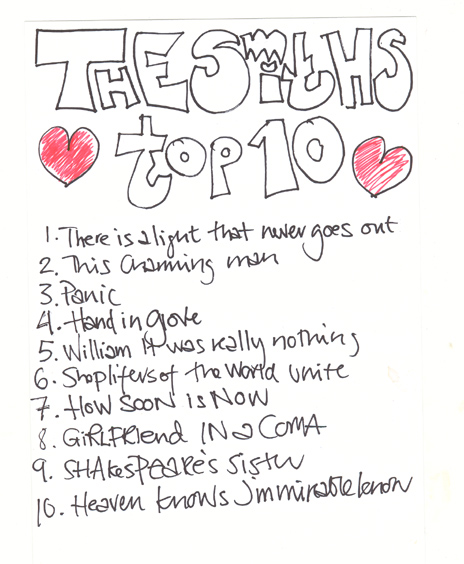 THE SMiTHS
top 10
1. There is a light that never goes out
2. This Charming man
3. Panic
4. Hand in glove
5. William It was really nothing
6. Shoplifers of the World Unite
7. HOW SOON iS NOW
8. GiRLFRiend IN a COMA
9. SHAkeSPEARe's SiSter
10. Heaven knows I'm mirable know